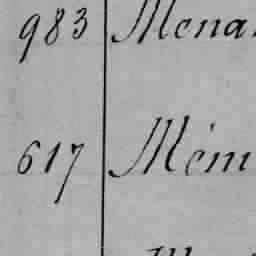 983 Mena
617 Mém